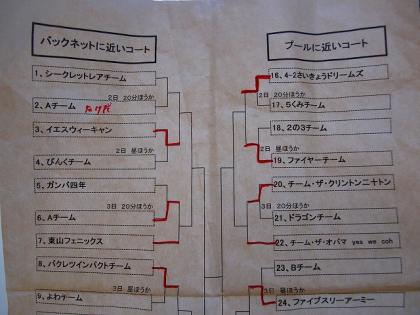 バックネットに近いコート
1、シークレットレアチーム
2日 20分ほうか
2、Aチーム
3、イエスウィーキャン
2日 昼ほうか
4、ぴんくチーム
5、ガンバ四年
3日 20分ほうか
6、Aチーム
7、東山フェニックス
8、バクレツインパクトチーム
3日 昼ほうか
9、よわチーム
プールに近いコート
16、4-2さいきょうドリームズ
2日 20分ほうか
17、5くみチーム
18、2の3チーム
2日 昼ほうか
19、ファイヤーチーム
20、チーム・ザ・クリントン二十トン
3日 20分ほうか
21、ドラゴンチーム
22、チーム・ザ・オバマ yes we coh
23、Bチーム
3日 昼ほうか
24、ファイブスリーアーミー